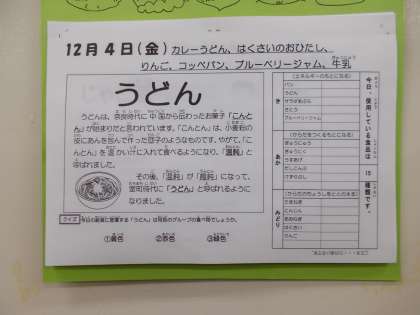 12月4日(金) カレーうどん、はくさいのおひたし、
りんご、コッペパン、ブルーベリージャム、牛乳
うどん
うどんは、奈良時代に中国から伝わったお菓子「こんと
ん」が始まりだと言われています。「こんとん」は、小麦粉の
皮にあんを包んで作った団子のようなものです。やがて、「こ
んとん」を温かい汁に入れて食べるようになり、「温飩」と
呼ばれました。
その後、「温飩」が「饂飩」になって、
室町時代に「うどん」と呼ばれるように
なりました。
クイズ
①黄色 ②赤色 ③緑色
今日、使用している食品は 15 種類です。
き
(エネルギーのもとになる)
パン
うどん
サラダあぶら
さとう
ブルーベリージャム
あか
(からだをつくるもとになる)
ぎゅうにゅう
ぎゅうにく
みどり
(からだのちょうしをととのえる)
たまねぎ
にんじん
はくさい
りんご